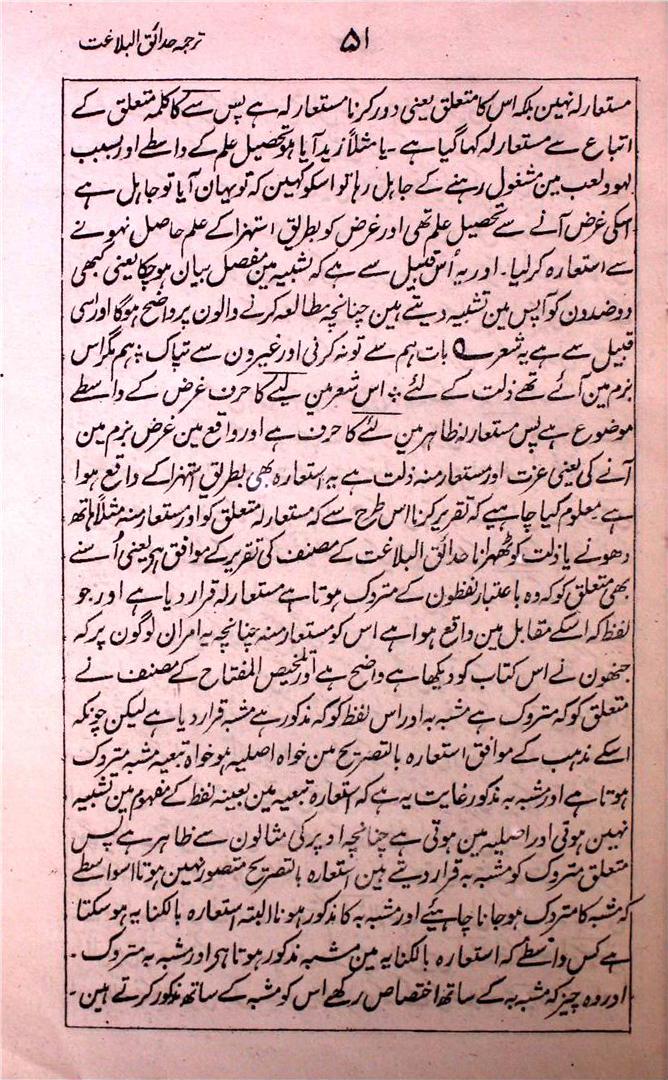 ترجمہ حدائق البلاغت
۵۱
مستعار لہ نہین بلکہ اس کا متعلق یعنی دور کرنا مستعار لہ ہے پس سے کا کلمہ متعلق کے
اتباع سے مستعار لہ کہا گیا ہے ۔ یا مثلاً زید آیا ہو تحصیل علم کے واسطے اور بسبب
لہو ولعب مین مشغول رہنے کے جاہل رہا تو اسکو کہین کہ تو یہان آیا تو جاہل ہے
اسکی غرض آنے سے تحصیل علم تھی اور غرض کو بطریق استہزا کے علم حاصل نہونے
سے استعارہ کر لیا ۔ اور یہ اُس قبیل سے ہے کہ تشبیہ مین مفصل بیان ہو چکا یعنی کبھی
دو ضدون کو آپس مین تشبیہ دیتے ہین چنانچہ مطالعہ کرنے والون پر واضح ہوگا اور اسی
قبیل سے ہے یہ شعر ؎ بات ہم سے تو نہ کرنی اور غیرون سے تپاک ؛ ہم مگر اس
بزم مین آئے تھے ذلت کے لئے ؛ اس شعر مین لئے کا حرف غرض کے واسطے
موضوع ہے پس مستعار لہ ظاہر مین لئے کا حرف ہے اور واقع مین غرض بزم مین
آنے کی یعنی عزت اور مستعار منہ ذلت ہے یہ استعارہ بھی بطریق استہزا کے واقع ہوا
ہے معلوم کیا چاہیے کہ تقریر کرنا اس طرح سے کہ مستعار لہ متعلق کو اور مستعار منہ مثلاً ہاتھ
دھونے یا ذلت کو ٹھہرانا حدائق البلاغت کے مصنف کی تقریر کے موافق ہی یعنی اُسنے
بھی متعلق کو کہ وہ باعتبار لفظون کے متروک ہوتا ہے مستعار لہ قرار دیا ہے اور جو
لفظ کہ اسکے مقابل مین واقع ہوا ہے اس کو مستعار منہ چنانچہ یہ امران لوگون پر کہ
جنھون نے اس کتاب کو دیکھا ہے واضح ہے اور تلخیص المفتاح کے مصنف نے
متعلق کو کہ متروک ہے مشبہ بہ اور اس لفظ کو کہ مذکور ہے مشبہ قرار دیا ہے لیکن چونکہ
اسکے مذہب کے موافق استعارہ بالتصریح مین خواہ اصلیہ ہو خواہ تبعیہ مشبہ متروک
ہوتا ہے اور مشبہ بہ مذکور غایت یہ ہے کہ استعارہ تبعیہ مین بعینہ لفظ کے مفہوم مین تشبیہ
نہین ہوتی اور اصلیہ مین ہوتی ہے چنانچہ اوپر کی مثالون سے ظاہر ہے پس
متعلق متروک کو مشبہ بہ قرار دیتے ہین استعارہ بالتصریح متصور نہین ہوتا اسواسطے
کہ مشبہ کا متروک ہو جانا چاہئیے اور مشبہ بہ کا مذکور ہونا البتہ استعارہ بالکنایہ ہو سکتا
ہے کس واسطے کہ استعارہ بالکنایہ مین مشبہ مذکور ہوتا ہی اور مشبہ بہ متروک ۔
اور وہ چیز کہ مشبہ بہ کے ساتھ اختصاص رکھے اس کو مشبہ کے ساتھ مذکور کرتے ہین ۔